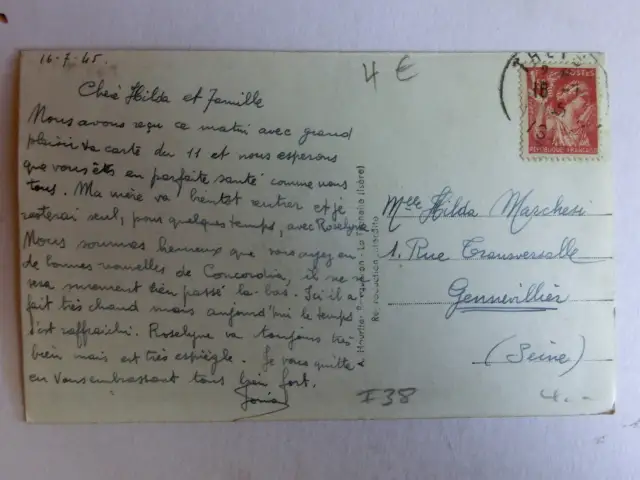 16-7-45.
4 €
Cher Hilda et famille
Nous avons reçu ce matin avec grand
plaisir ta carte du 11 et nous esperons
que vous êtes en parfaite santé comme nous
tous. Ma mère va bientôt rentrer et je
resterai seul, pour quelques temps, avec Roselyne
Nous sommes heureux que vous ayez eu
de bonnes nouvelles de Concordia, il ne
sera surement bien passé la-bas. Ici il a
fait très chaud mais aujourd'hui le temps
s'est raffraichi. Roselyne va toujours très
bien mais est très espiègle. Je vous quitte
en vous embrassant tous bien fort.
POSTES
18
REPUBLIQUE FRANÇAISE
Melle Hilda Marchesi
1. Rue Transversalle
Gennevillier
(Seine)
Reproduction interdite
(Isère)
I38
4.-